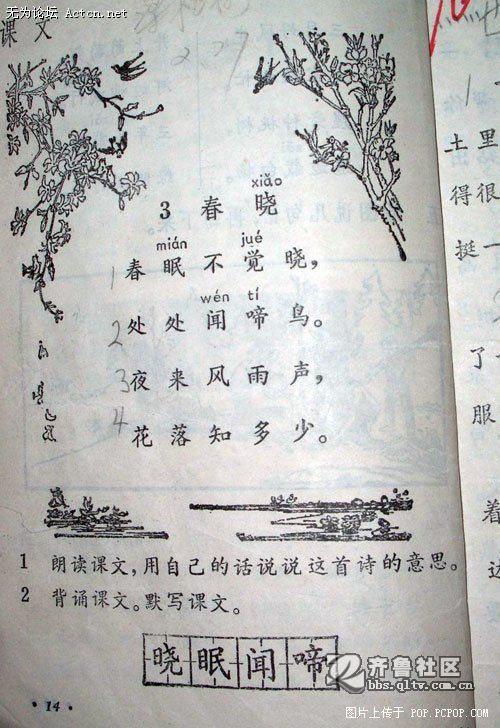 无为论坛 - Actcn.net
Www.Actcn.net
课文
xiǎo
3 春晓
mián jué
1 春眠不觉晓，
wén tí
2 处处闻啼鸟。
3 夜来风雨声，
4 花落知多少。
1 朗读课文，用自己的话说说这首诗的意思。
2 背诵课文。默写课文。
晓眠闻啼
·14·
里
土很
得一
挺
了
服
着
边
齐鲁社区
bbs.qltv.com.cn
图片上传于 POP.PCPOP.COM